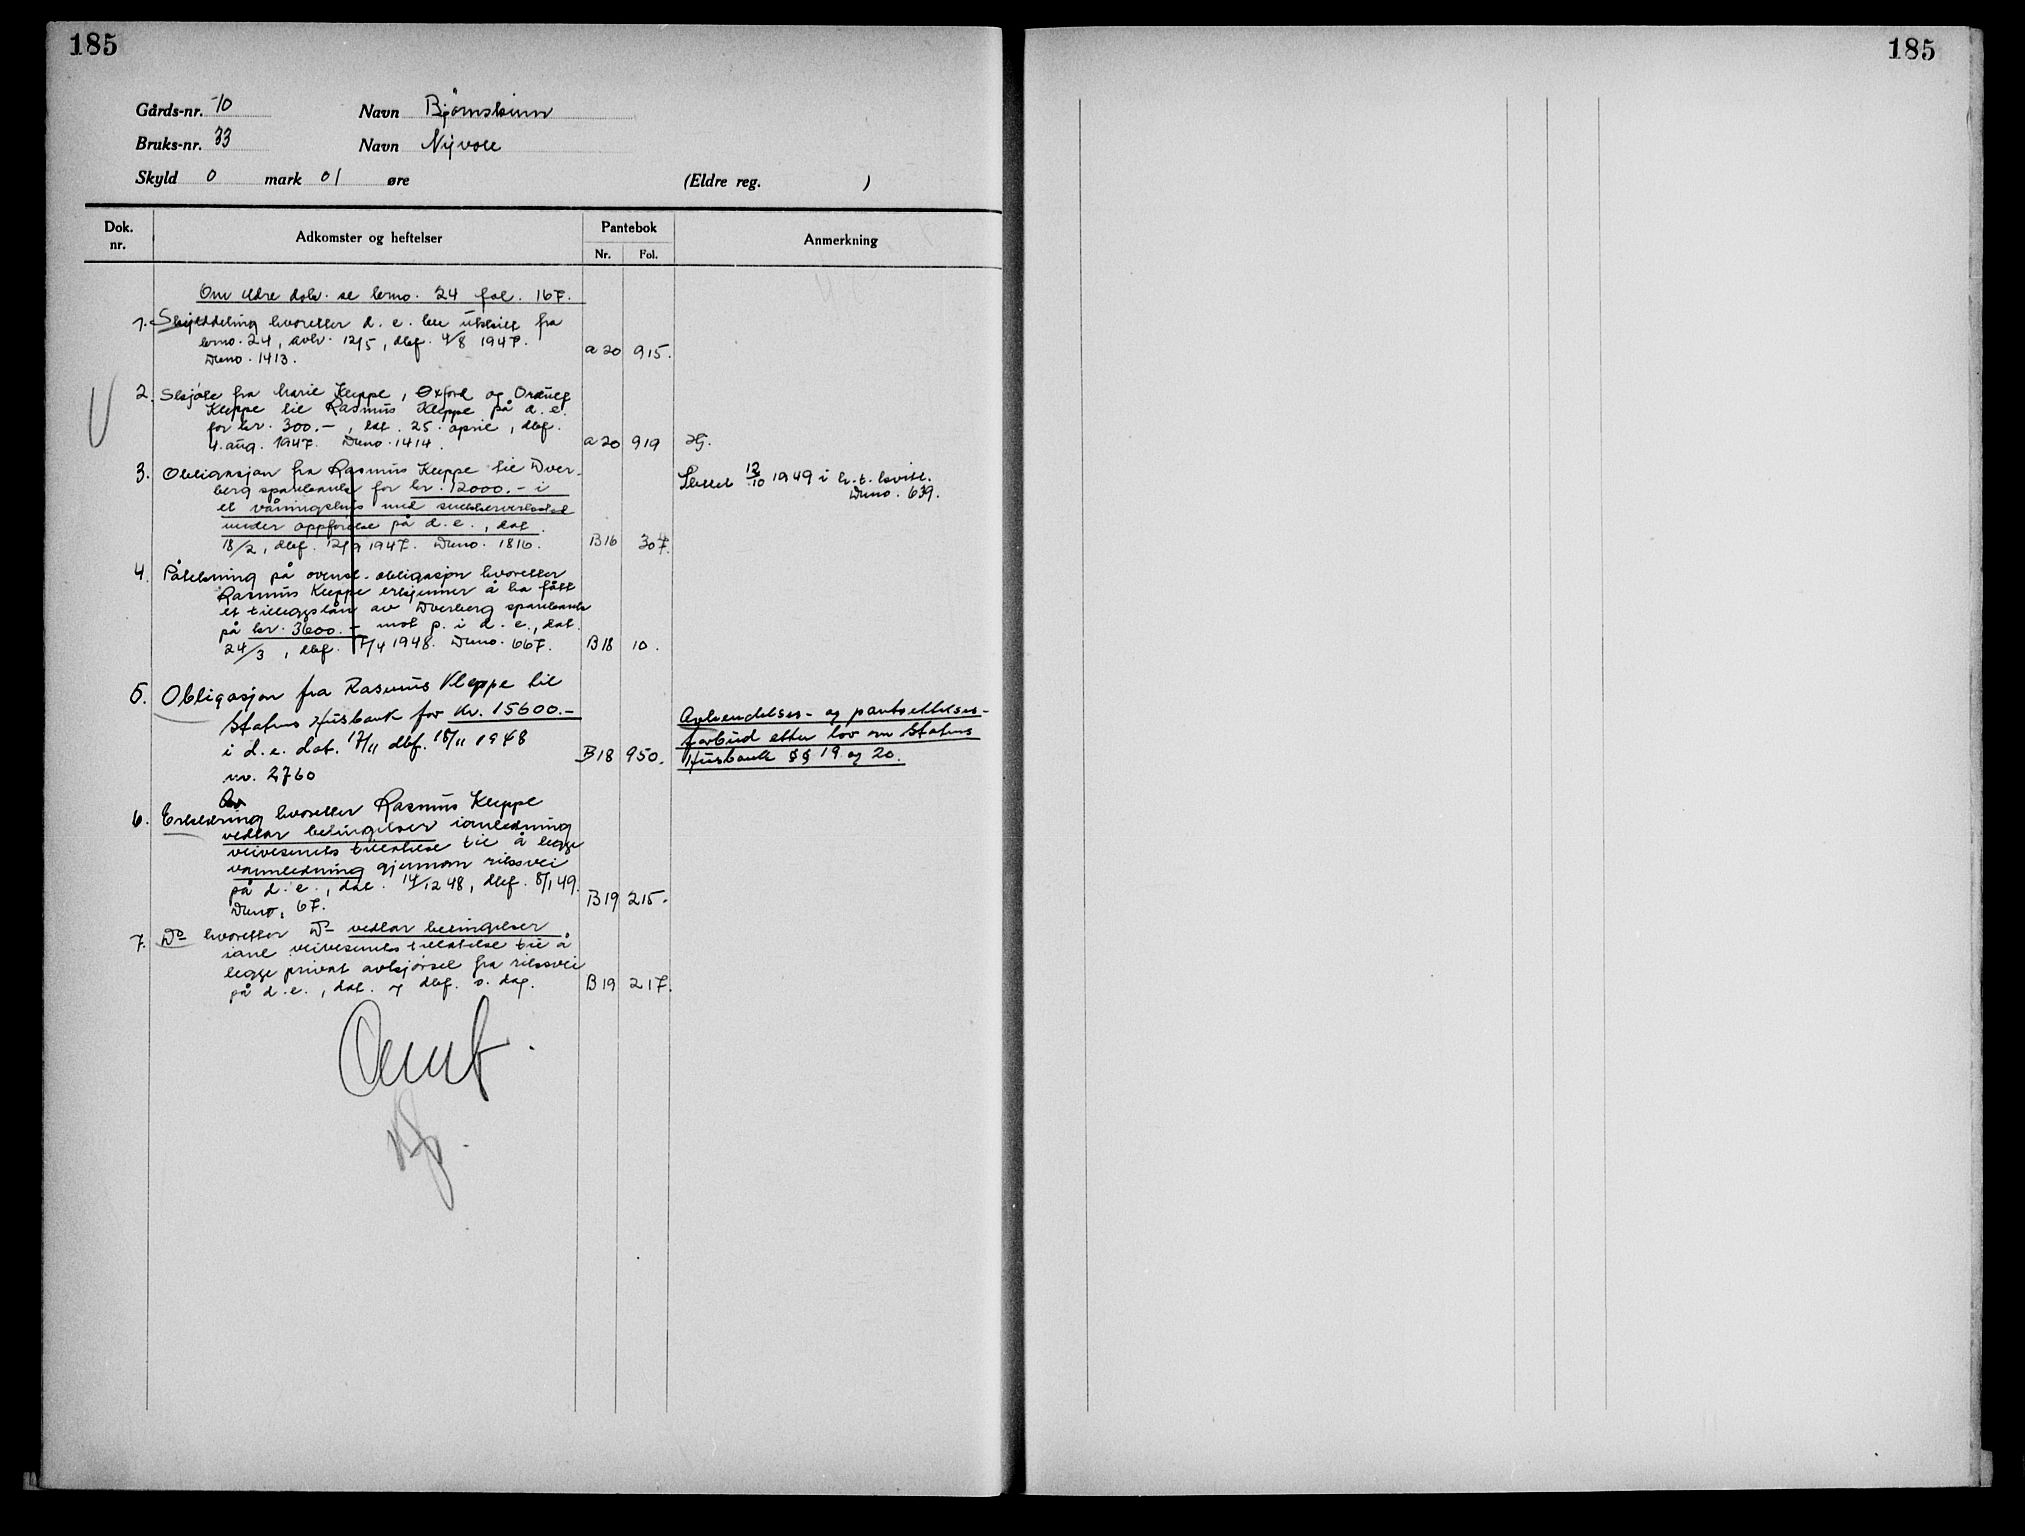 185
185
Gårds-nr. 10 Navn Bjørnskinn
Bruks-nr. 33 Navn Nyvoll
Skyld 0 mark 01 øre (Eldre reg. )
Dok. nr. Adkomster og heftelser Pantebok Nr. Fol. Anmerkning
Om eldre dok. se brno. 24 fol. 167.
1. Skylddeling hvoretter d. e. ble utskilt fra
brno. 24, avh. 12/5, dbf. 4/8 1947.
Dno. 1413. a 20 915.
2. Skjøte fra Marie Kleppe, Oxford og
Kleppe til Rasmus Kleppe på d. e.
for kr. 300.-, dat. 25. april, dbf.
4. aug. 1947. Dno. 1414. a 20 919 Hj.
3. Obligasjon fra Rasmus Kleppe til Dver-
berg sparebank for kr. 12000.- i
et våningshus med snekkerverksted
under oppførelse på d. e., dat.
18/2, dbf. 12/9 1947. Dno. 1816. B 16 307.
Slettet 12/10 1949 i h. t. kvitt.
Dno. 639.
4. Påtekning på ovenst. obligasjon hvoretter
Rasmus Kleppe erkjenner å ha fått
et tilleggslån av Dverberg sparebank
på kr. 3600.- mot p. i d. e., dat.
24/3, dbf. 7/4 1948. Dno. 667. B 18 10.
5. Obligasjon fra Rasmus Kleppe til
Statens Husbank for kr. 15600.-
i d. e. dat. 17/11 dbf. 18/11 1948
nr. 2760 B 18 950.
Avhendelses- og pantsettelses-
forbud etter lov om Statens
Husbank §§ 19 og 20.
6. Erklæring hvoretter Rasmus Kleppe
vedtar betingelser i anledning
veivesenets tillatelse til å legge
vannledning gjennom riksvei
på d. e., dat. 14/12 48, dbf. 8/1 49.
Dno. 67. B 19 215.
7. Do hvoretter Do vedtar betingelser
i anl veivesenets tillatelse til å
legge privat avkjørsel fra riksvei
på d. e., dat. og dbf. s. dag. B 19 217.